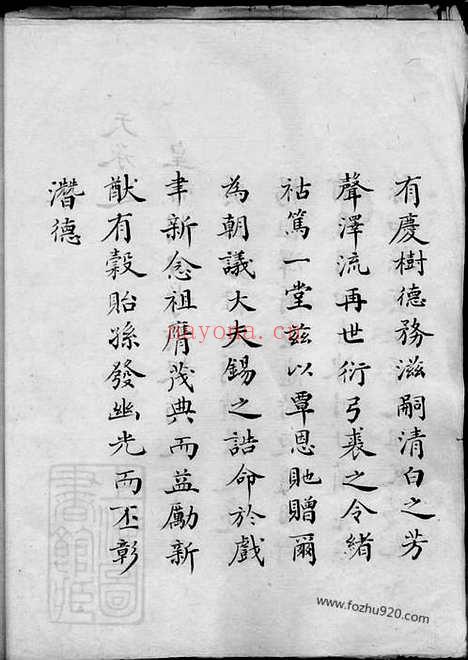 有慶樹德務滋嗣清白之芳
聲澤流再世衍弓裘之令緒
祜篤一堂茲以覃恩貤贈爾
為朝議大夫錫之誥命於戲
聿新念祖膺茂典而益勵新
猷有穀貽孫發幽光而丕彰
濳德
nayona.cn
www.fozhu920.com